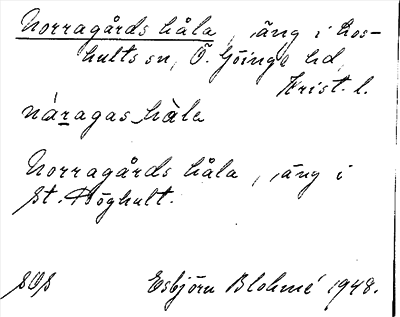 Norragårds håla, äng i Los-
hults sn, Ö. Göinge hd,
Krist. l.
náragas hàla
Norragårds håla, äng i
St. Höghult.
SOS Esbjörn Blohmé 1948.